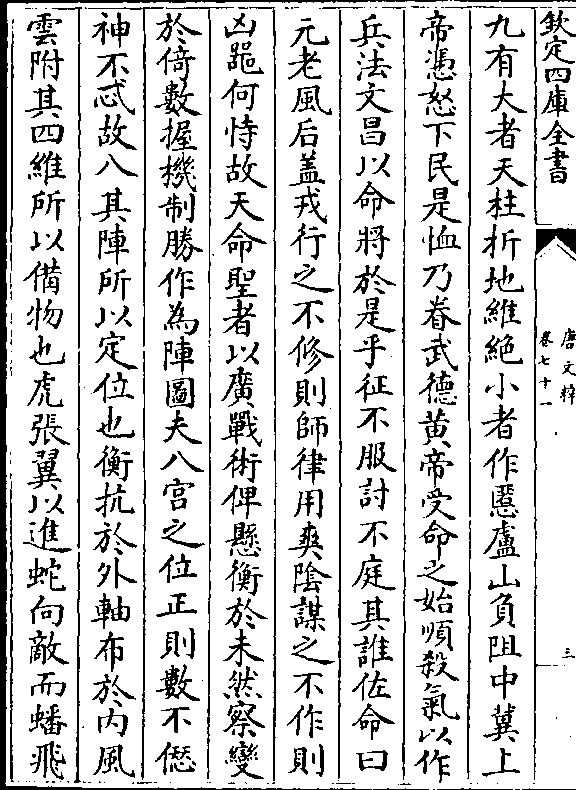 欽定四庫全書
唐文粹
卷七十一
三
九有大者天柱折地維絶小者作慝廬山負阻中冀上
帝憑怒下民是恤乃眷武德黄帝受命之始順殺氣以作
兵法文昌以命將於是乎征不服討不庭其誰佐命曰
元老風后盖戎行之不修則師律用爽陰謀之不作則
凶噐何恃故天命聖者以廣戰術俾懸衡於未然察變
於倚數握機制勝作為陣圖夫八宫之位正則數不僽
神不忒故八其陣所以定位也衡抗於外軸布於内風
雲附其四維所以備物也虎張翼以進蛇向敵而蟠飛